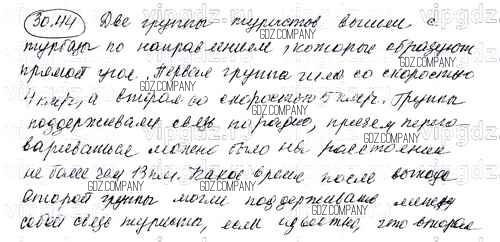 30.44 Две группы туристов вышли с
турбазы по направлениям, которые образуют
прямой угол. Первая группа шла со скоростью
4 км/ч, а вторая со скоростью 5 км/ч. Группы
поддерживали связь по радио, причем перего-
вариваться можно было на расстоянии
не более чем 13 км. Какое время после выхода
второй группы могли поддерживать между
собой связь туристы, если известно, что вторая